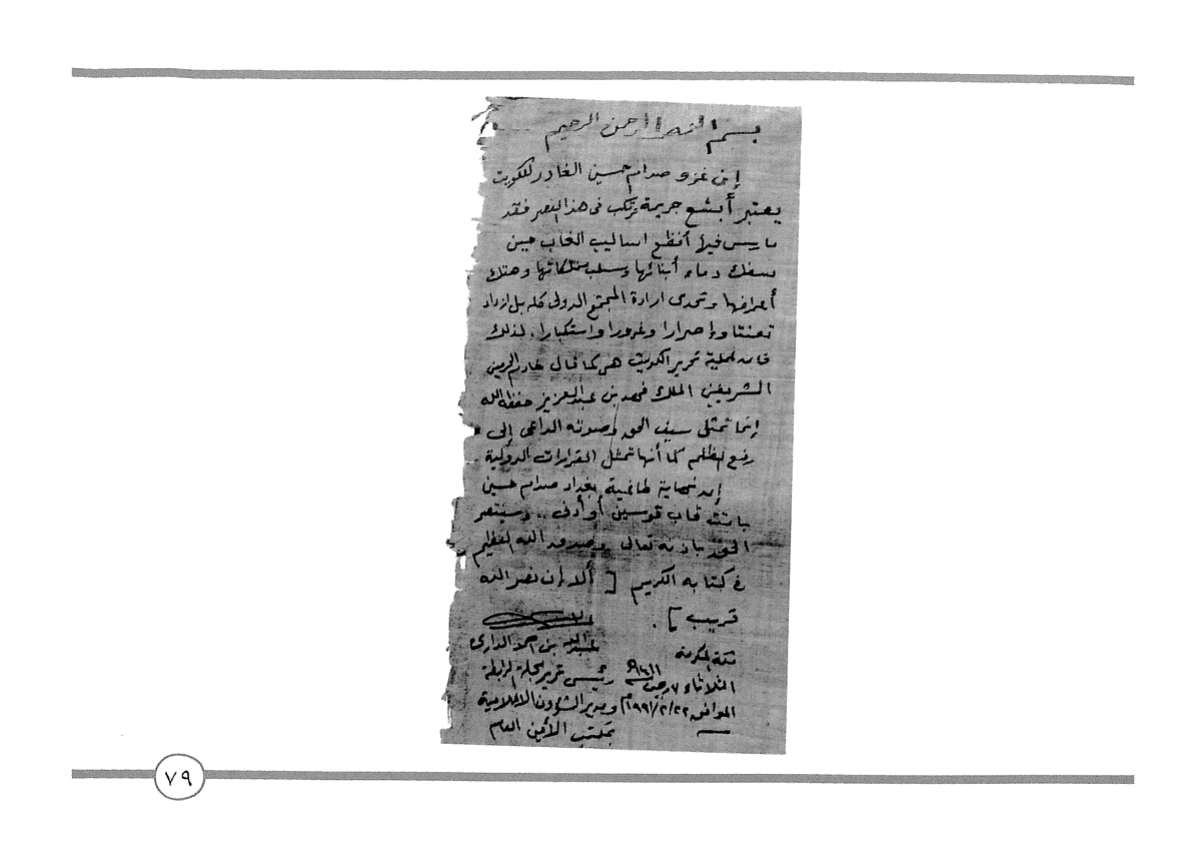 بسم الله الرحمن الرحيم
إن غزو صدام حسين الغادر للكويت
يعتبر أبشع جريمة ترتكب في هذا العصر فقد
مارس فيها أفظع اساليب الغاب حين
سفك دماء أبنائها وسلب ممتلكاتها وهتك
أعراضها وتحدى ارادة المجتمع الدولي كله بل ازداد
تعنتا وإصرارا وغرورا واستكبارا. لذلك
فان عملية تحرير الكويت هي كما قال خادم الحرمين
الشريفين الملك فهد بن عبدالعزيز حفظه الله
إنما تمثل سيف الحق وصوته الداعي إلى
رفع الظلم كما أنها تمثل القرارات الدولية
إن نهاية طاغية بغداد صدام حسين
باتت قاب قوسين أو أدنى .. وسينتصر
الحق باذنه تعالى وصدق الله العظيم
في كتابه الكريم [ ألا إن نصر الله
قريب ] .
عبدالله بن احمد الداري
مكة المكرمة
رئيس تحرير مجلة الرابطة
الثلاثاء ٧ رجب ١٤١١هـ
ومدير الشؤون الاعلامية
الموافق ١٩٩١/٢/٢٢م
بمكتب الأمين العام
٧٩